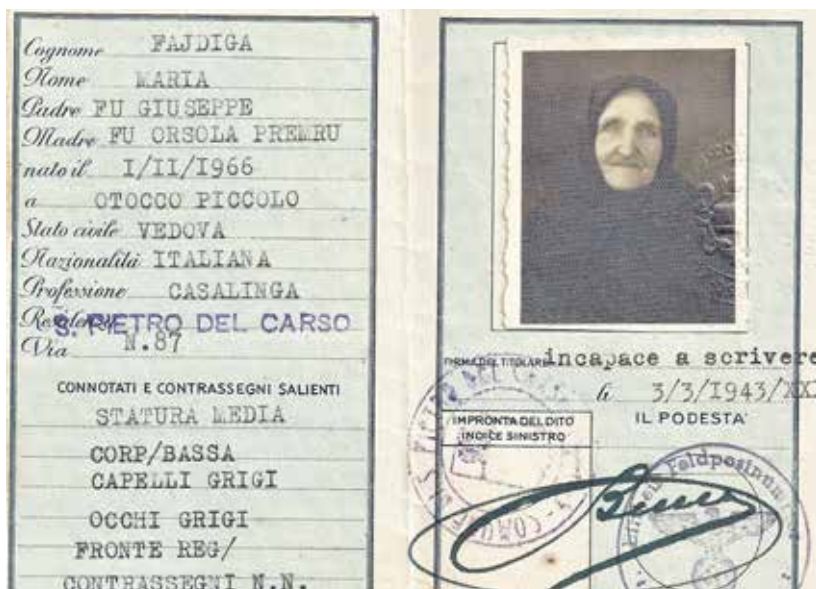 Cognome FAJDIGA
Nome MARIA
Padre FU GIUSEPPE
Madre FU ORSOLA PREMRU
nato il I/II/I966
a OTOCCO PICCOLO
Stato civile VEDOVA
Nazionalità ITALIANA
Professione CASALINGA
Residenza S. PIETRO DEL CARSO
Via N.87
CONNOTATI E CONTRASSEGNI SALIENTI
STATURA MEDIA
CORP/BASSA
CAPELLI GRIGI
OCCHI GRIGI
FRONTE REG/
CONTRASSEGNI N.N.
FIRMA DEL TITOLARE incapace a scrivere
li 3/3/I943/XXI
IMPRONTA DEL DITO
INDICE SINISTRO
IL PODESTA'
Feldpostnummer